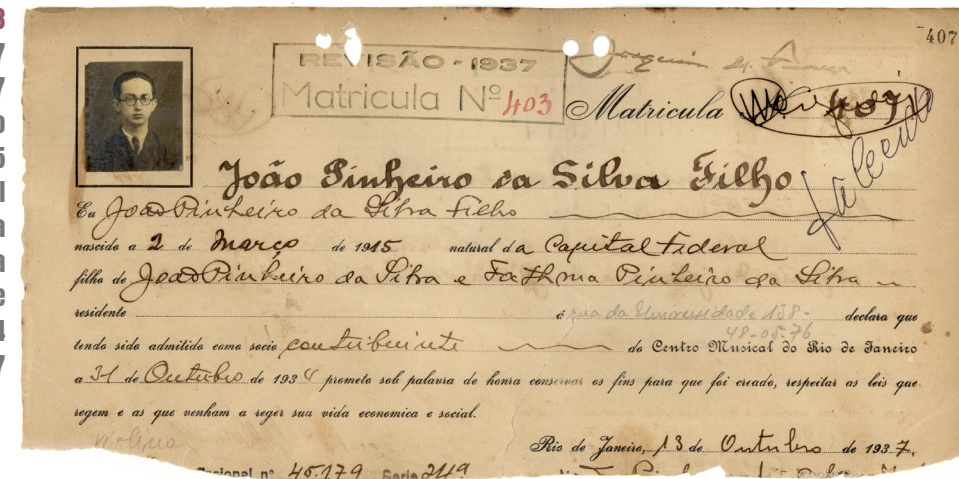 407
REVISÃO - 1937
Matricula Nº 403
Matricula 407
falecido
João Pinheiro da Silva Filho
Eu João Pinheiro da Silva Filho
nascido a 2 de Março de 1915 natural da Capital Federal
filho de João Pinheiro da Silva e Fathma Pinheiro da Silva
residente é rua da Universidade 138- declara que
48-05.76
tendo sido admitido como socio contribuinte do Centro Musical do Rio de Janeiro
a 31 de Outubro de 1934 prometo sob palavra de honra conservar os fins para que foi creado, respeitar as leis que
regem e as que venham a reger sua vida economica e social.
violino
Rio de Janeiro, 13 de Outubro de 1937.
nº 45.179 Serie 211ª